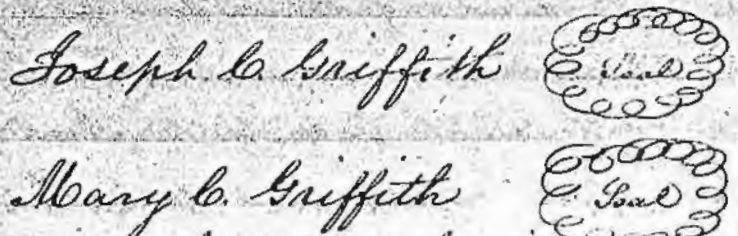 Joseph C. Griffith Seal
Mary C. Griffith Seal